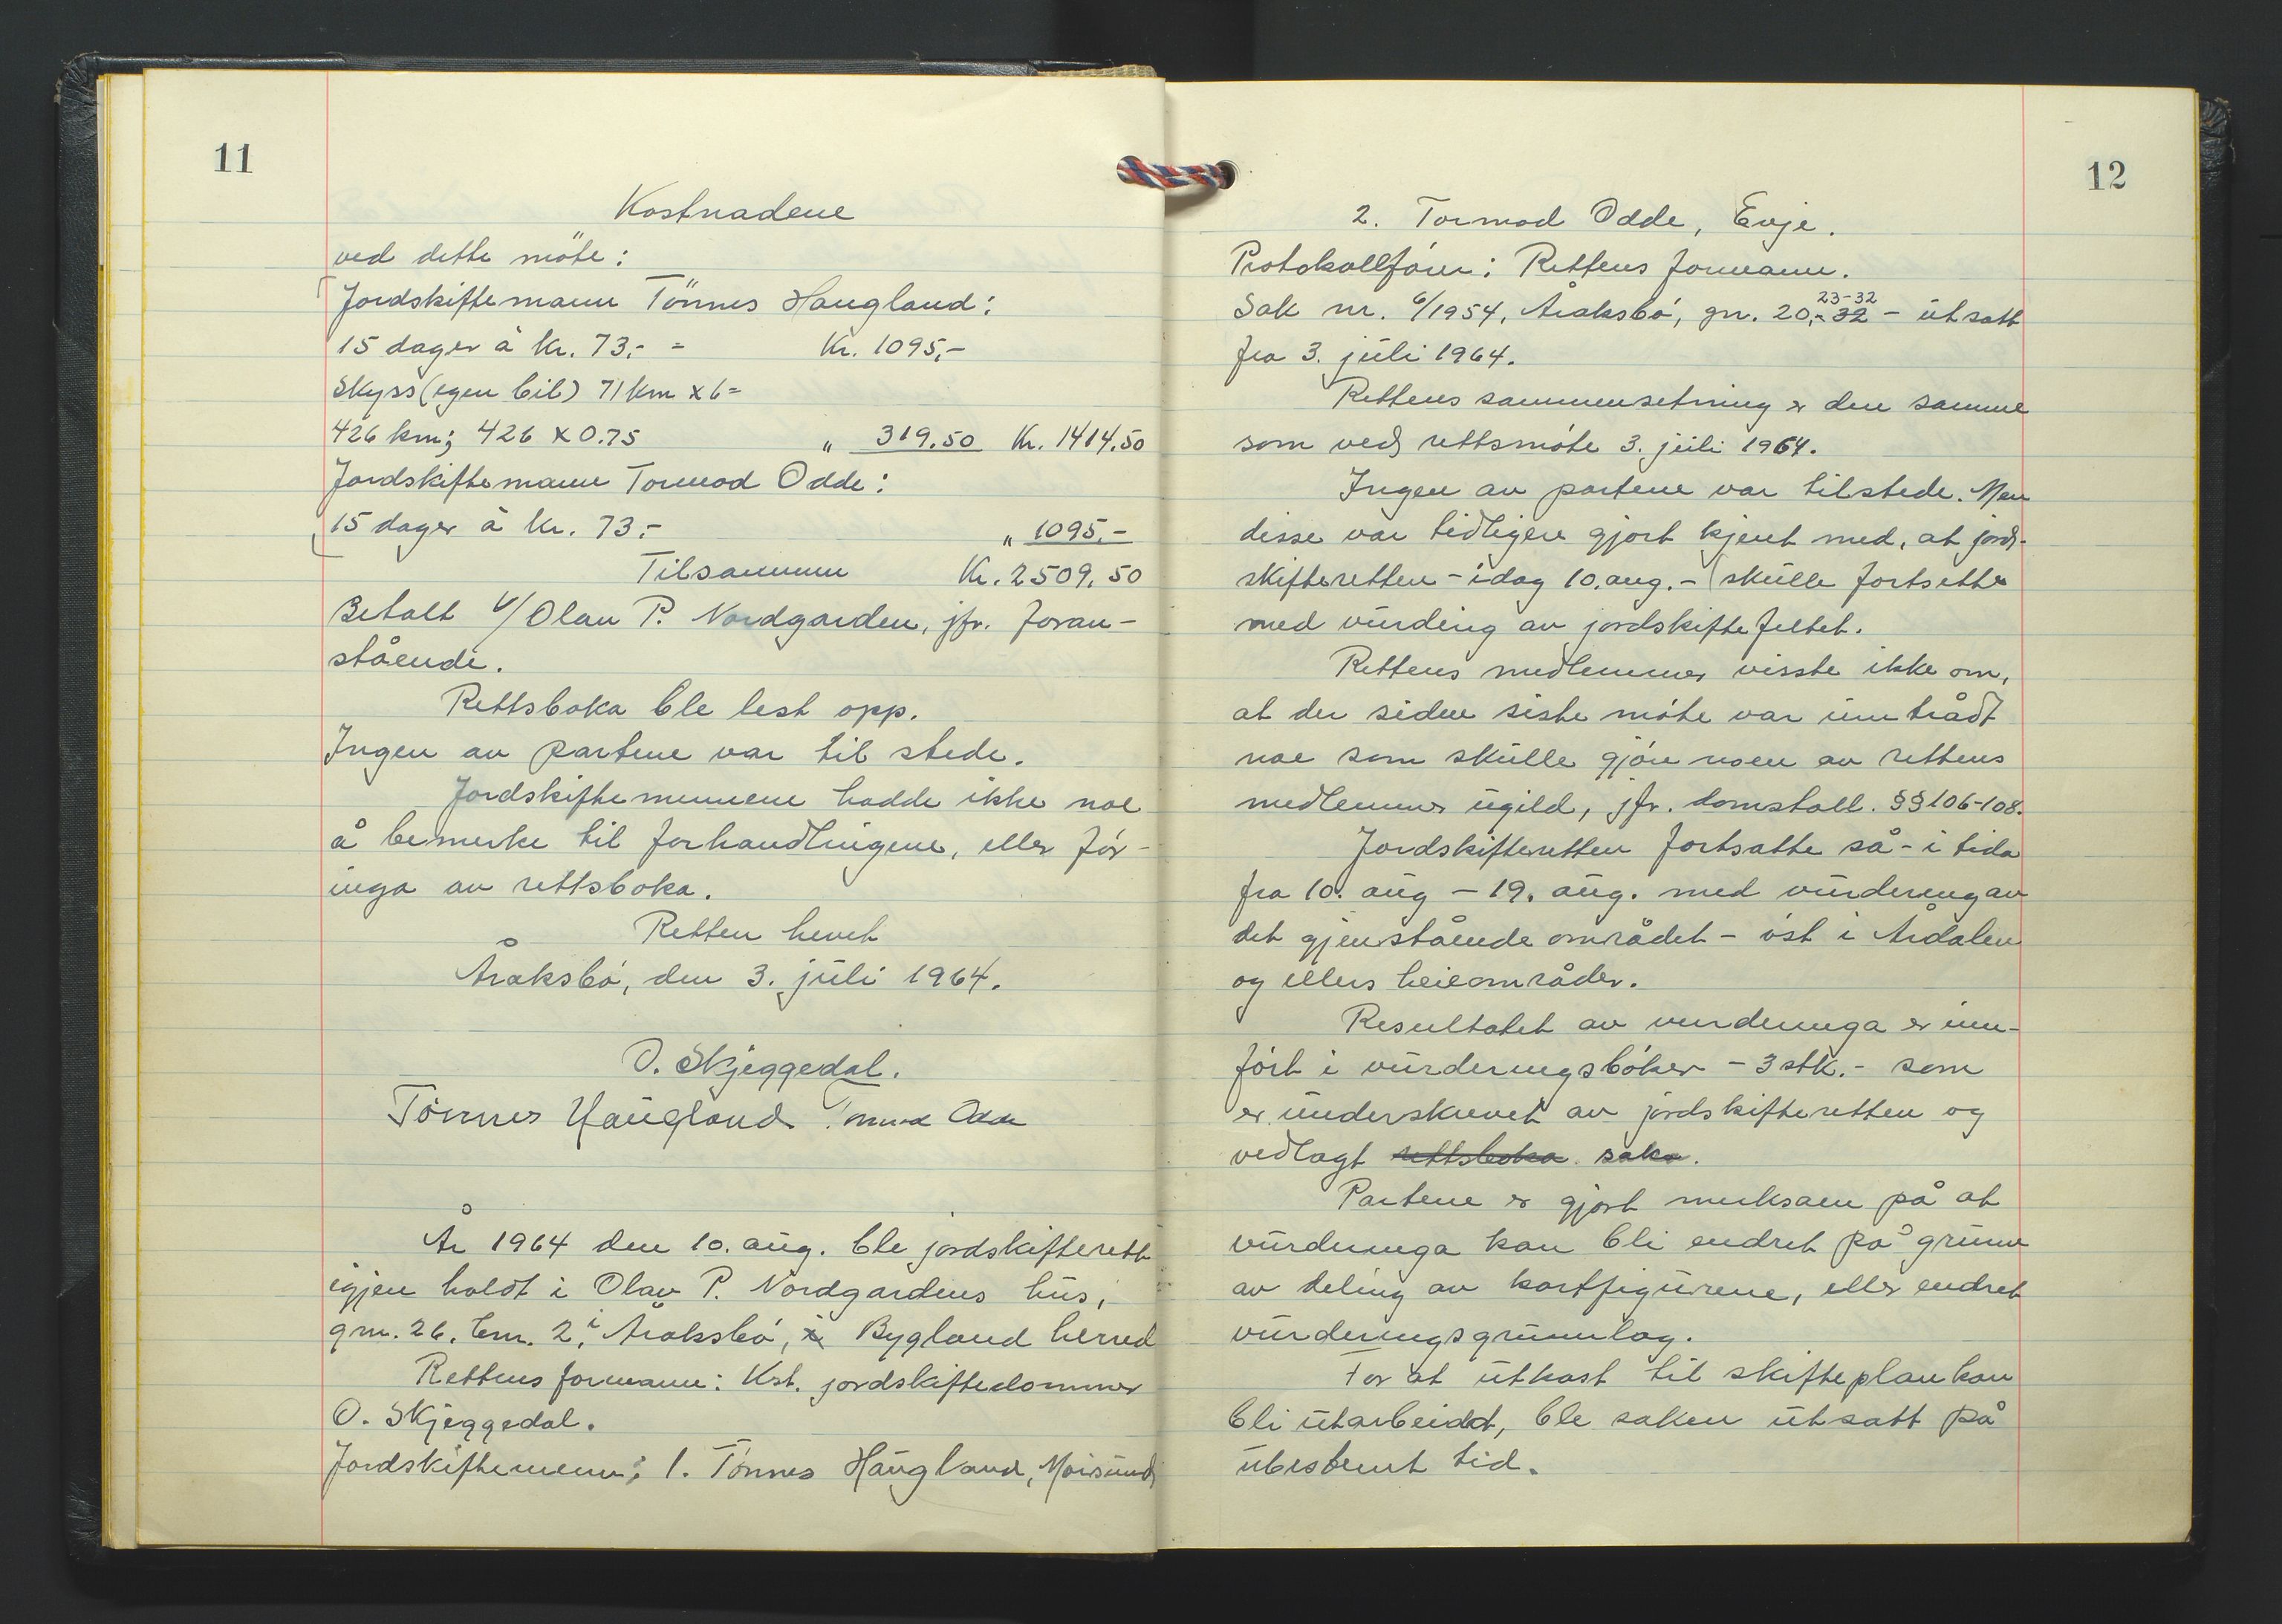 11
Kostnadene
ved dette möte:
Jordskiftemann Tönnes Haugland:
15 dager à kr. 73,- = Kr. 1095,-
Skyss (egen bil) 71 km x 6 =
426 km; 426 x 0.75 " 319.50 Kr. 1414.50
Jordskiftemann Tormod Odde:
15 dager à kr. 73,- " 1095,-
Tilsammen Kr. 2509,50
Betalt v/ Olav P. Nordgarden, jfr. foran-
stående.
Rettsboka ble lest opp.
Ingen av partene var til stede.
Jordskiftemennene hadde ikke noe
å bemerke til forhandlingene, eller för-
inga av rettsboka.
Retten hevet
Åraksbó, den 3. juli 1964.
O. Skjeggedal.
Tönnes Haugland Tormod Odde
År 1964 den 10. aug. ble jordskifterett
igjen holdt i Olav P. Nordgardens hus,
gnr. 26. bnr. 2, i Åraksbó, i Bygland herred
Rettens formann: Kst. jordskiftedommer
O. Skjeggedal.
Jordskiftemenn: 1. Tónnes Haugland, Moisund
12
2. Tormod Odde, Evje.
Protokollfórer: Rettens formann.
Sak nr. 6/1954, Åraksbó, gnr. 20, 23-32 - 32 - utsatt
fra 3. juli 1964.
Rettens sammensetning er den samme
som ved rettsmóte 3. juli 1964.
Ingen av partene var tilstede. Men
disse var tidligere gjort kjent med, at jord-
skifteretten - idag 10. aug. - skulle fortsette
med vurding av jordskiftefeltet.
Rettens medlemmer visste ikke om,
at der siden siste móte var inntrådt
noe som skulle gjóre noen av rettens
medlemmer ugild, jfr. domstoll. §§ 106-108.
Jordskifteretten fortsatte så - i tida
fra 10. aug - 19. aug. med vurdering av
det gjenstående området - óst i Årdalen
og ellers heieområder.
Resultatet av vurderinga er inn-
fórt i vurderingsbóker - 3 stk. - som
er underskrevet av jordskifteretten og
vedlagt rettsboka saka.
Partene er gjort merksam på at
vurderinga kan bli endret på grunn
av deling av kartfigurene, eller endret
vurderingsgrunnlag.
For at utkast til skifteplan kan
bli utarbeidet, ble saken utsatt på
ubestemt tid.